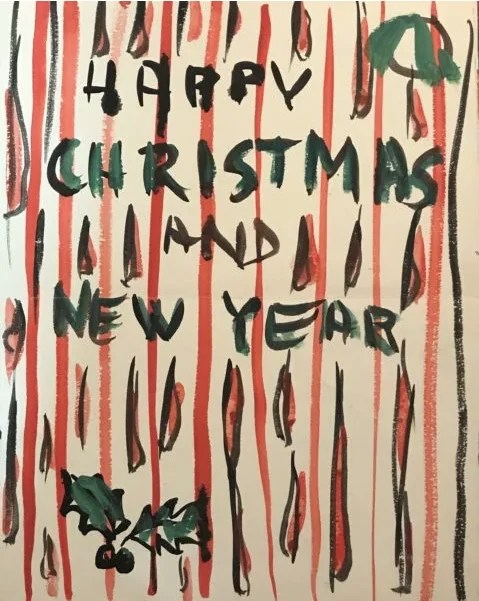 HAPPY
CHRISTMAS
AND
NEW YEAR